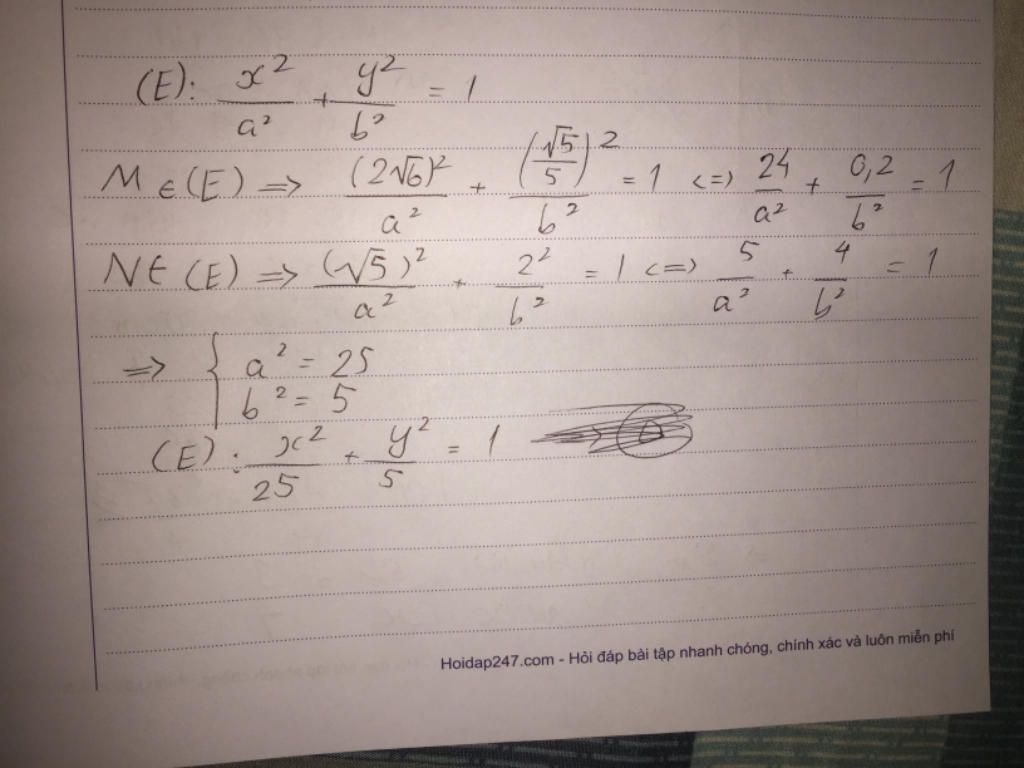 (E): x²/a² + y²/b² = 1
M ∈ (E) => (2√6)²/a² + (√5/5)²/b² = 1 <=> 24/a² + 0,2/b² = 1
N ∈ (E) => (√5)²/a² + 2²/b² = 1 <=> 5/a² + 4/b² = 1
=> { a² = 25
b² = 5
(E): x²/25 + y²/5 = 1
Hoidap247.com - Hỏi đáp bài tập nhanh chóng, chính xác và luôn miễn phí